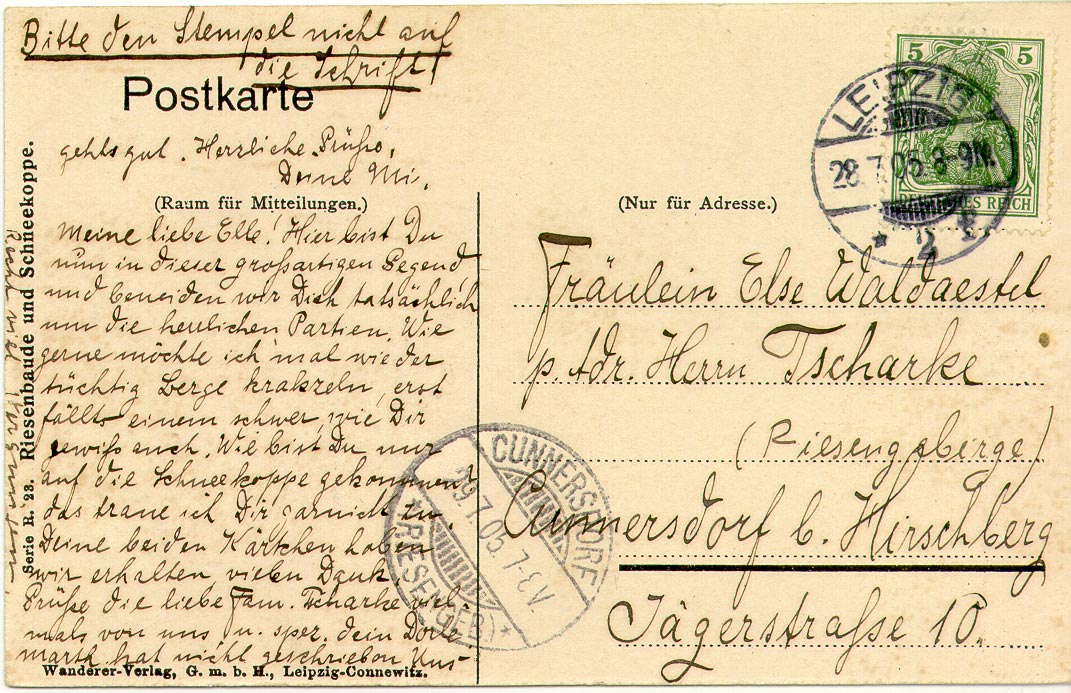 Bitte den Stempel nicht auf
die Schrift!
Postkarte
gehts gut. Herrliche Grüße,
Deine Mi.
(Raum für Mitteilungen.)
Meine liebe Elle! Hier bist Du
nun in dieser großartigen Gegend
und beneiden wir Dich tatsächlich
um die herrlichen Partien. Wie
gerne möchte ich mal wieder
tüchtig Berge krakzeln, erst
fällts einem schwer, wie Dir
gewiß auch. Wie bist Du nur
auf die Schneekoppe gekommen?
das traue ich Dir garnicht zu.
Deine beiden Kärtchen haben
wir erhalten, vielen Dank.
Grüße die liebe Fam. Tscharke viel-
mals von uns u. spez. dein
hat nicht geschrieben Uns
Wanderer-Verlag, G. m. b. H., Leipzig-Connewitz.
Serie R. 23. Riesenbaude und Schneekoppe.
Recht viel Vergnügen!
(Nur für Adresse.)
5 5
DEUTSCHES REICH
LEIPZIG
28.7.05.8-9N.
* 2
Fräulein Else Waldaestel
p. Adr. Herrn Tscharke
(Riesengeberge)
Cunnersdorf b. Hirschberg
Jägerstraße 10.
CUNNERSDORF
29.7.05.7-8V.
*(RIESENGEB.)*